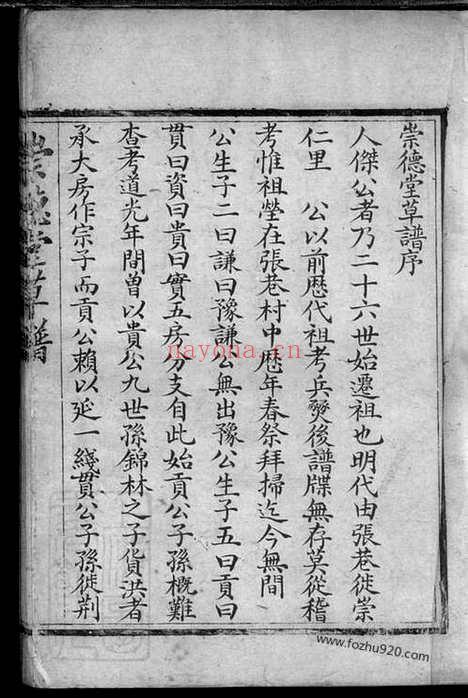 崇德堂草譜序
人傑公者乃二十六世始遷祖也明代由張巷徙崇
仁里　公以前歷代祖考兵燹後譜牒無存莫從稽
考惟祖塋在張巷村中歷年春祭拜掃迄今無間
公生子二曰謙曰豫謙公無出豫公生子五曰貢曰
貫曰資曰貴曰實五房分支自此始貢公子孫概難
查考道光年間曾以貴公九世孫錦林之子貨洪者
承大房作宗子而貢公賴以延一綫貫公子孫徙荆
崇德堂草譜
nayona.cn
www.fozhu920.com